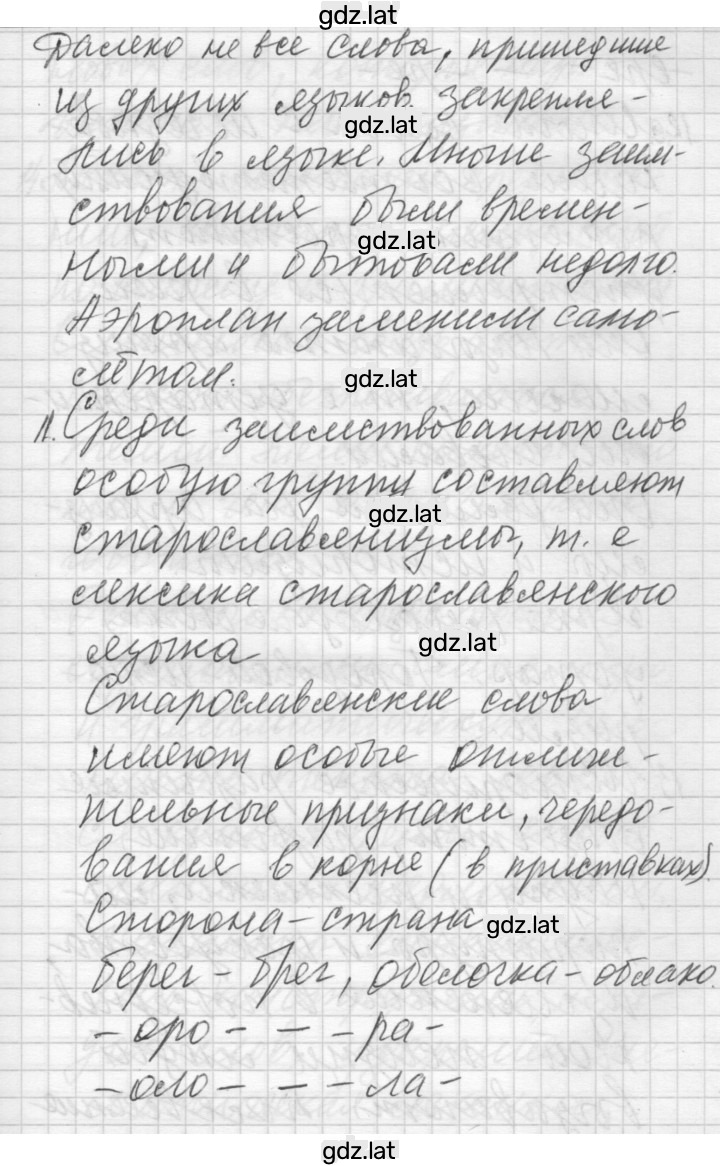 gdz.lat
Далеко не все слова, пришедшие
из других языков закрепля-
gdz.lat
лись в языке. Иные заим-
ствования были времен-
gdz.lat
ными и бытовали недолго.
Аэроплан заменили само-
лётом.
gdz.lat
II. Среди заимствованных слов
особую группу составляют
gdz.lat
старославянизмы, т. е
лексика старославянского
языка
gdz.lat
Старославянские слова
имеют особые отличи-
тельные признаки, чередо-
вания в корне (в приставках).
Сторона - страна
gdz.lat
берег - брег, оболочка - облако.
- оро - - - ра -
- оло - - - ла -
gdz.lat